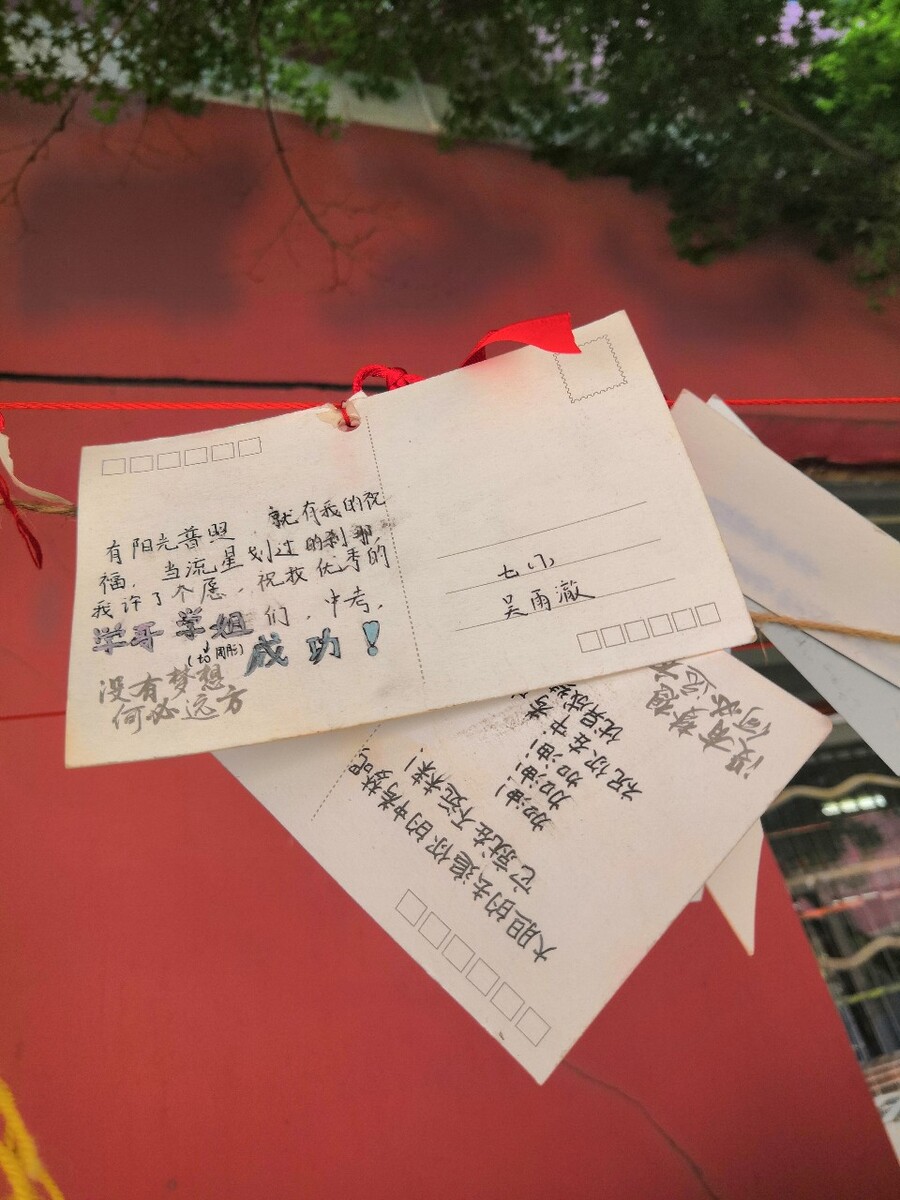 有阳光普照，就有我的祝
福，当流星划过的刹那，
我许了个愿，祝我优秀的
学哥学姐们，中考，
成功！
没有梦想
何必远方
吴雨澈
大胆的去追你的中考梦吧
它就在不远未来！
加油！
加油！
加油！
祝你在中考
优异成
没有梦想
何必远方